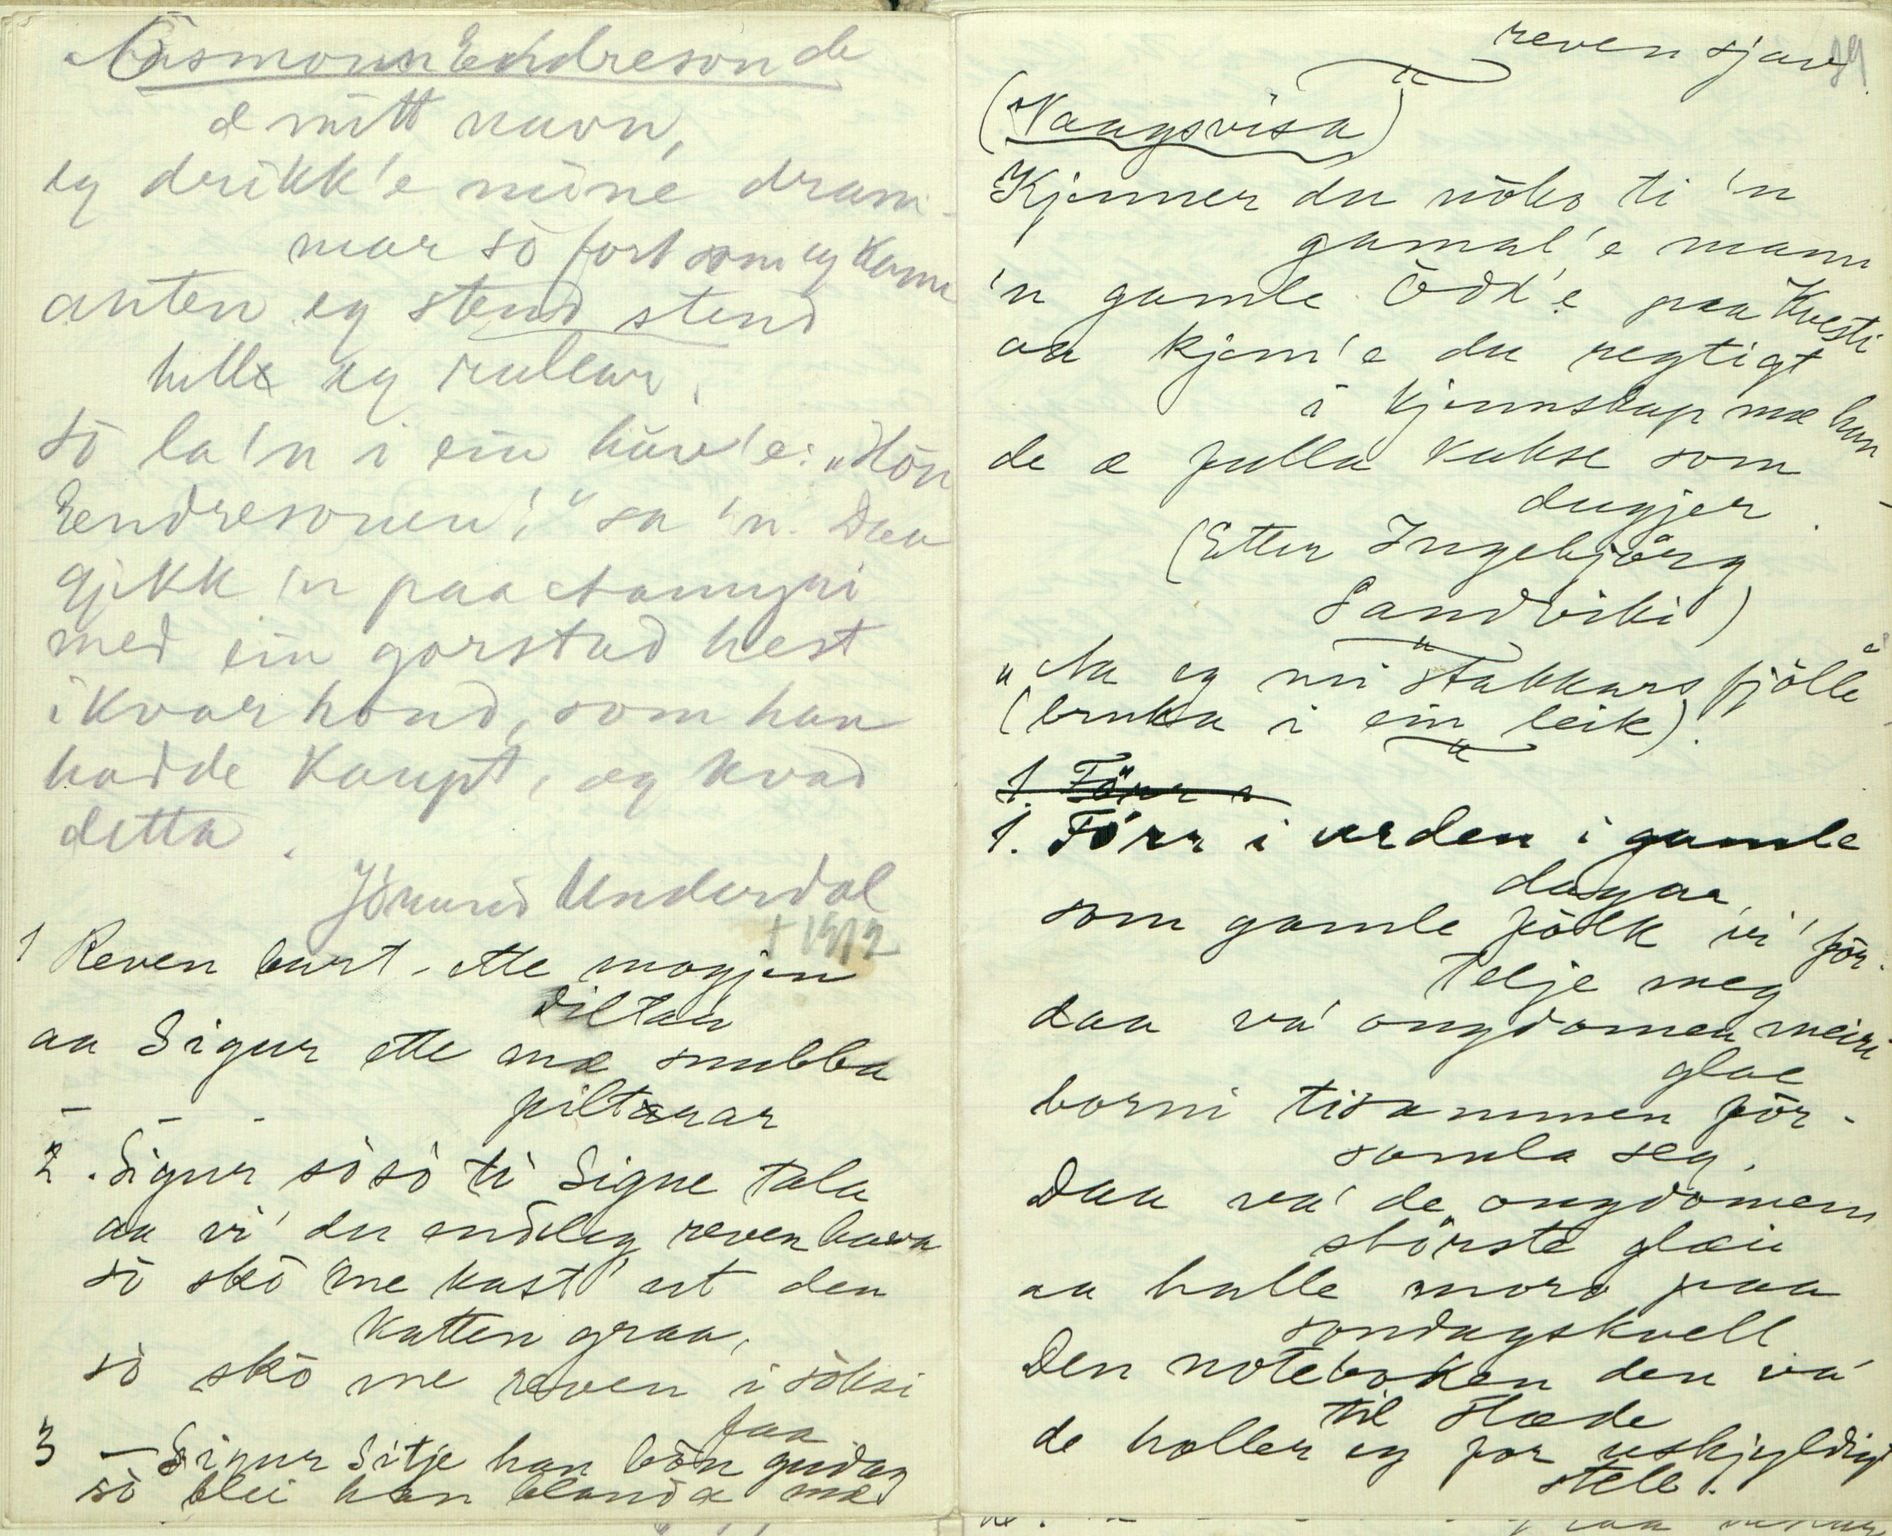 Aasmonn Endreson de
æ mitt navn,
eg drikk'e mine dram-
mar so fort som eg kann
anten eg stend stend
hell eg rullar,
so la'n i ein hüv'e: "Hön
Eendresonen!" sa'n. Daa
gjikk'n paa
med ein gorstad hest
i kvar hond, som han
hadde kaupt, og kvad
detta.
Jörund Underdal
† 1912
1 Reven burt-ette mogjen
diltau
aa Sigur ette mæ snubba
piltarar
- - -
2. Sigur sòsò ti Signe tala
aa vi' du endeleg reven hava
so skò me kast' ut den
katten graa,
sò skò me reven i sòksi
faa
3 - Sigur Sitje han bön gudag
sò blei han blanda mæ
reven sjav
29
(Vaagsvisa)
Kjenner du nòko ti 'n
gamal'e mann
'n gamle Òdd'e paa Kvesti
aa kjem'e du regtigt
i kjennskap mæ han
de æ fulla kukse som
dugjer.
(Etter Ingebjörg
Sandviki)
"Aa eg mi stakkars fjòlle"
(bruka i ein leik).
1. Förr i
1. Förr i verden i gamle
dagar
som gamle fòlk vi' för-
telje meg
daa va' ongdomen meir
glae
borni tisammen för-
samla seg.
Daa va' de ongdomens
största glæie
aa halle moro paa
sondagskvell
Den noteboken den va'
til stæde
de holler eg for uskjyldigt
stell.